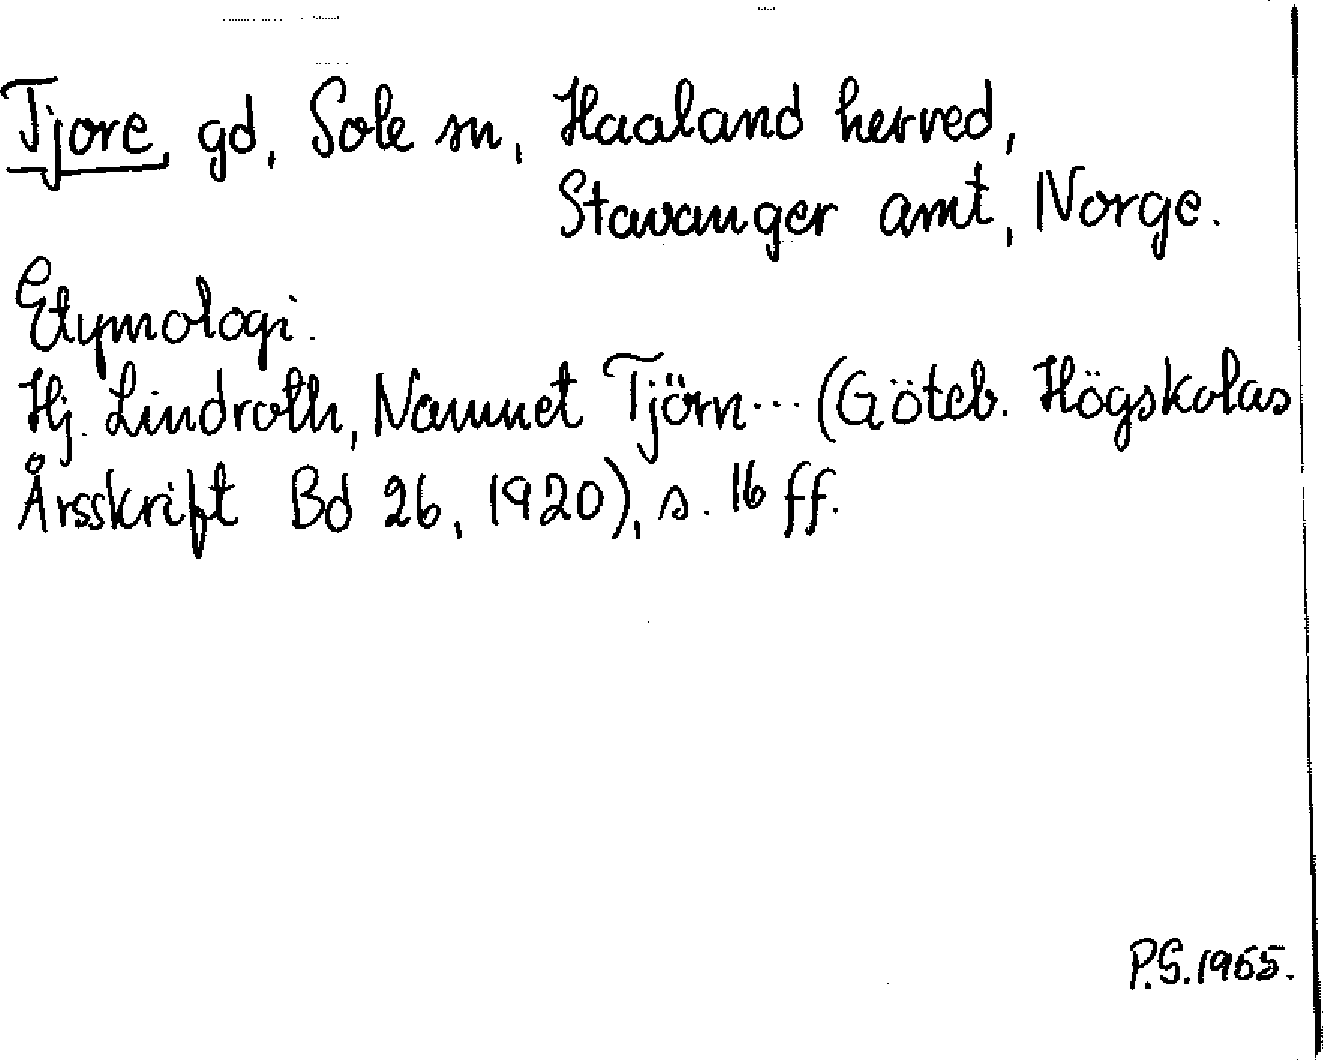 Tjore, gd, Sole sn, Haaland herred,
Stavanger amt, Norge.
Etymologi.
Hj. Lindroth, Namnet Tjörn... (Göteb. Högskolas
Årsskrift Bd 26, 1920), s. 16 ff.
P.S. 1965.